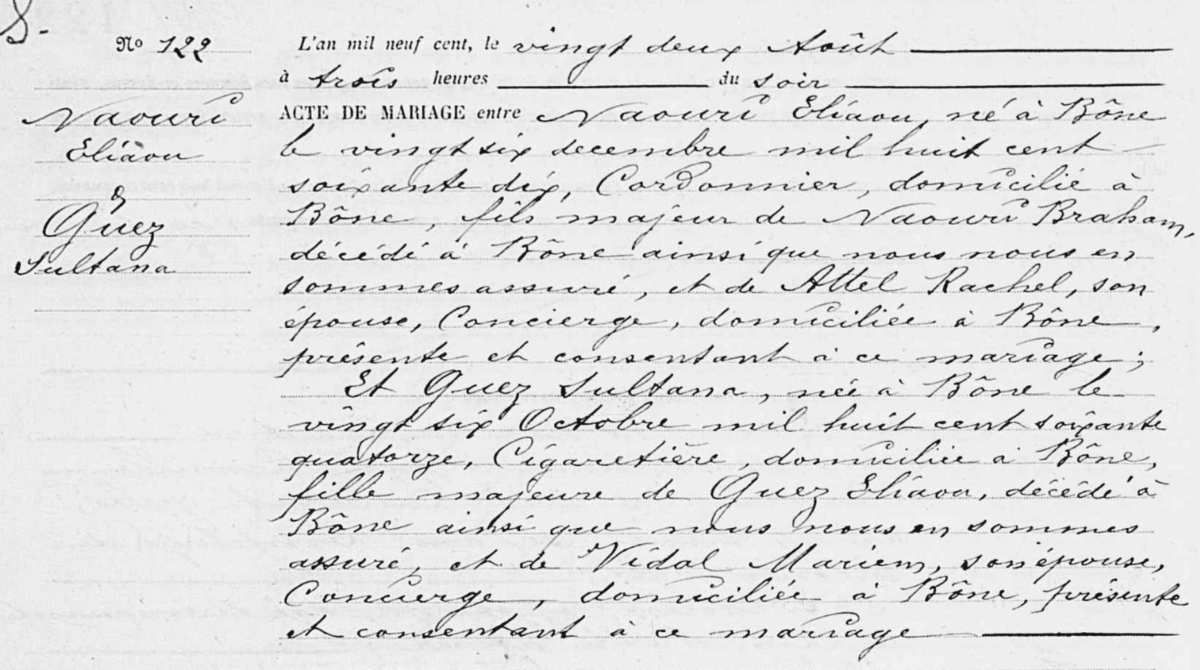 S.
Nº 122
Naouri
Eliaou
&
Guez
Sultana
L'an mil neuf cent, le vingt deux Août
à trois heures du soir
ACTE DE MARIAGE entre Naouri Eliaou, né à Bône
le vingt six decembre mil huit cent
soixante dix, Cordonnier, domicilié à
Bône, fils majeur de Naouri Braham,
décédé à Bône ainsi que nous nous en
sommes assuré, et de Attel Rachel, son
épouse, Concierge, domiciliée à Bône,
présente et consentant à ce mariage;
Et Guez Sultana, née à Bône le
vingt six Octobre mil huit cent soixante
quatorze, Cigaretière, domiciliée à Bône,
fille majeure de Guez Eliaou, décédé à
Bône ainsi que nous nous en sommes
assuré, et de Vidal Mariem, son épouse,
Concierge, domiciliée à Bône, présente
et consentant à ce mariage